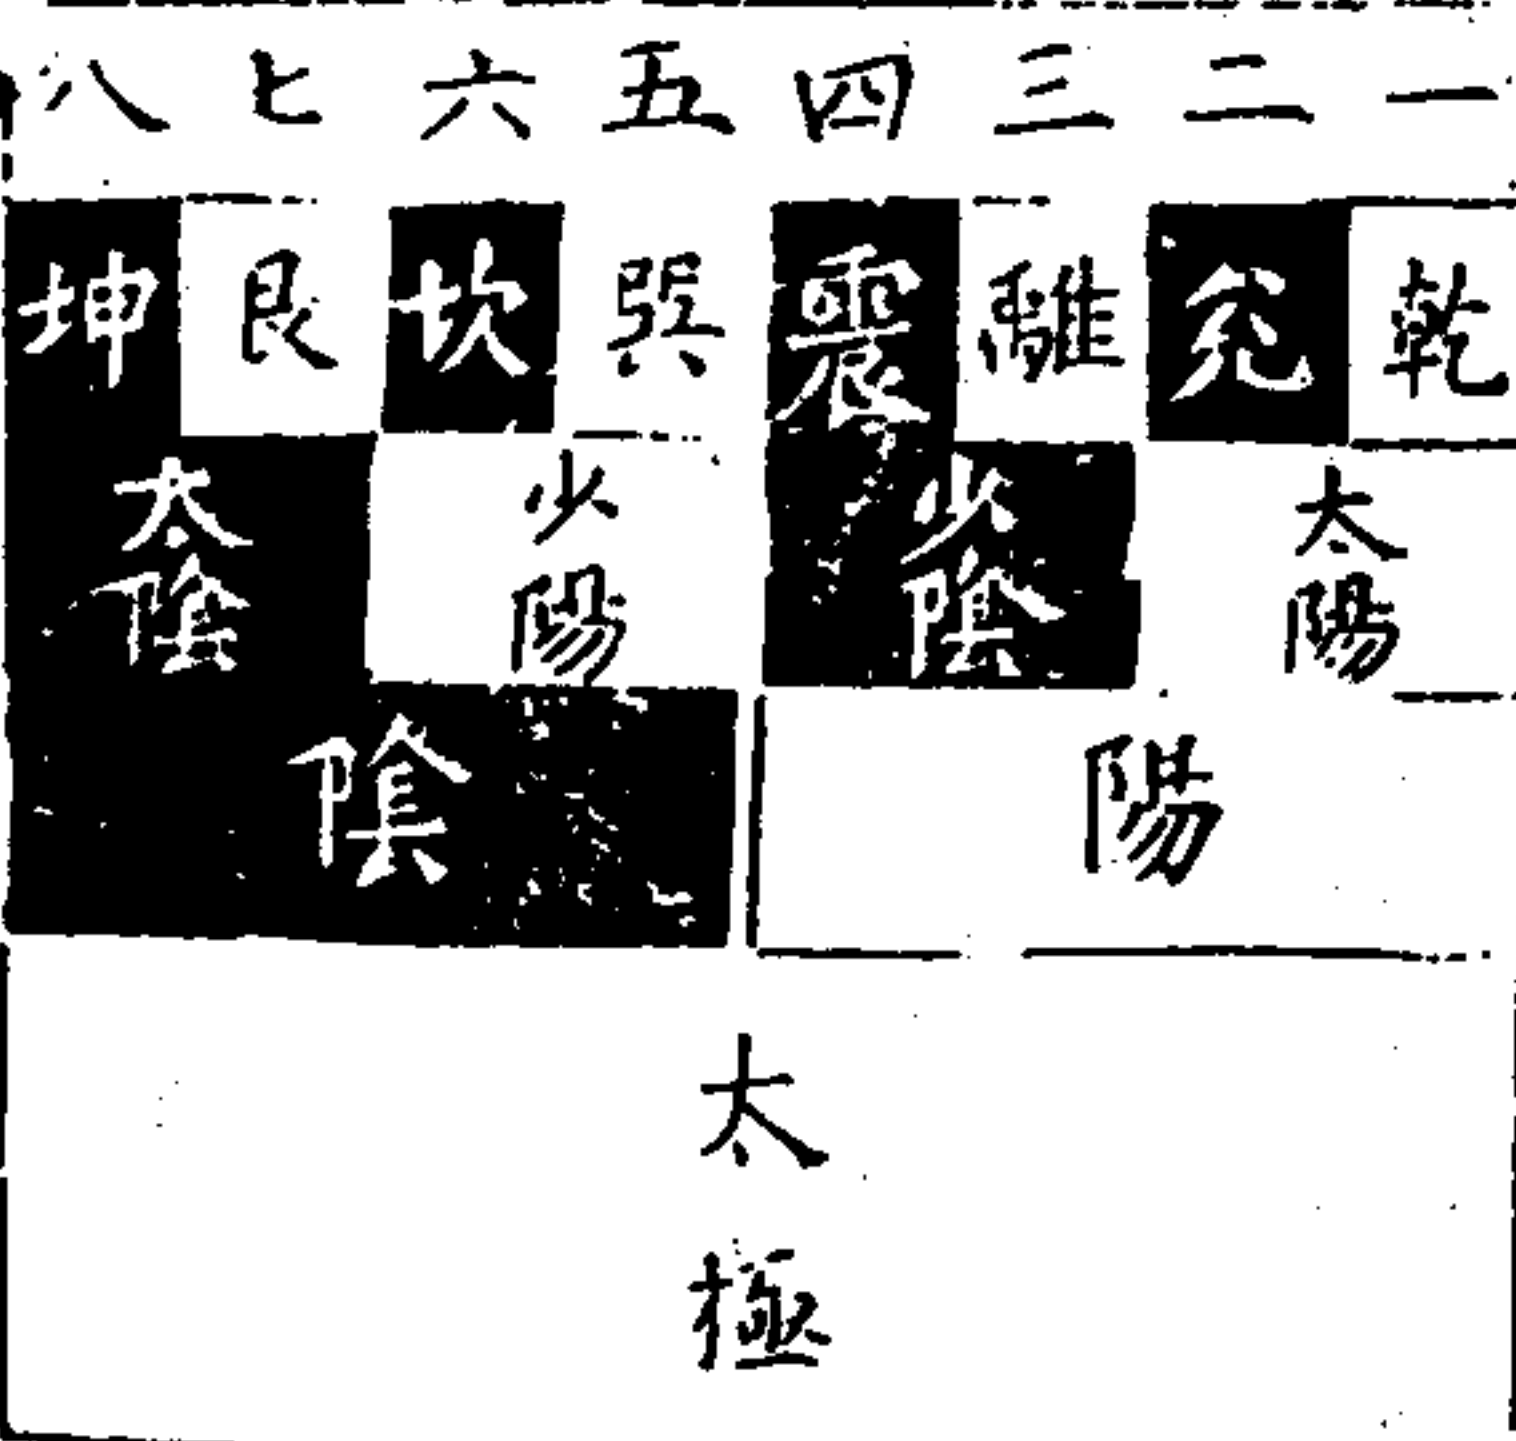 一 二 三 四 五 六 七 八
乾 兌 離 震 巽 坎 艮 坤
太陽 少陰 少陽 太陰
陽 陰
太極